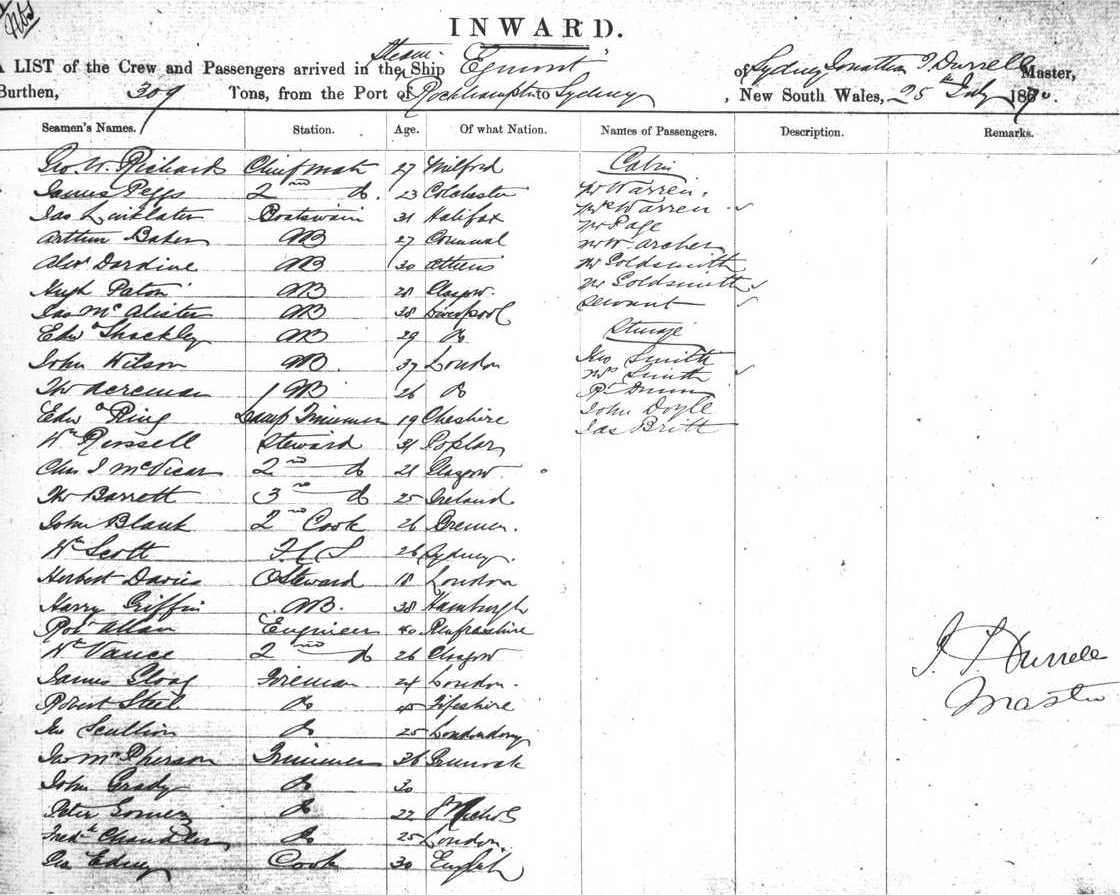 INWARD.
A LIST of the Crew and Passengers arrived in the Steam Ship Egmont of Sydney Jonathan T. Durrell Master,
Burthen, 309 Tons, from the Port of Rockhampton to Sydney, New South Wales, 25th July 1870.
Seamen's Names. Station. Age. Of what Nation. Names of Passengers. Description. Remarks.
Geo. W. Richard Chief Mate 27 Milford Cabin
James Peggs 2nd do. 23 Colchester Mr Warren.
Jas Linklater Boatswain 31 Halifax Mrs Warren
Mr Page
Arthur Baker AB 27 Cornwal Mr W. Archer
Alex Dardine AB 30 Athens Mr Goldsmith
Hugh Paton AB 28 Glasgow Mr Goldsmith
Jas McAlister AB 38 Liverpool Servant
Edwd Shockley AB 29 do Sterage
John Wilson AB. 37 London Jno Smith
Mrs Smith
Thos Acreman AB 26 do Dunn
Edwd Ring Lamp Trimmer 19 Cheshire John Doyle
Jas Britt
Wm Russell Steward 31 Poplar
Chas J McVicar 2nd do 21 Glasgow
Thos Barrett 3rd do 25 Ireland
John Blank 2nd Cook 26 Bremen.
Wm Scott F C S 26 Sydney.
Herbert Davies O Steward 18 London
Harry Griffin AB. 38 Hamburgh
Robt Allan Engineer 40 Renfrewshire
Wm Vance 2nd do 26 Glasgow
James Gloag Fireman 24 London.
Robert Steel do 45 Fifeshire
Scullion do 25 Londondery
Jno McPherson Trimmer 36 Greenock
John Grady do 30
Peter Gomez do 22 St Nichols
Fredk Chandler do 25 London.
Edney Cook 30 English
J. T. Durrell
Master